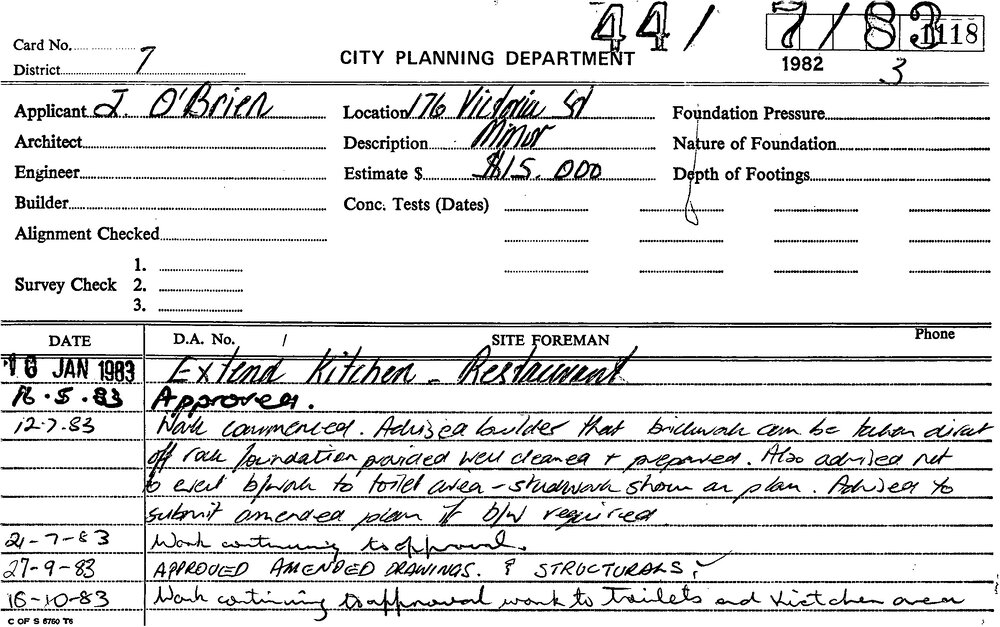 44/7/83 1118
Card No.
CITY PLANNING DEPARTMENT
1982 3
District 7
Applicant J. O'Brien Location 176 Victoria St Foundation Pressure
Architect Description Minor Nature of Foundation
Engineer Estimate $ $15.000 Depth of Footings
Builder Conc. Tests (Dates)
Alignment Checked
1.
Survey Check 2.
3.
DATE D.A. No. / SITE FOREMAN Phone
16 JAN 1983 Extend Kitchen - Restaurant
16.5.83 Approved.
12-7-83 Work commenced. Advised builder that brickwork can be taken direct
off rock foundation provided well cleaned + prepared. Also advised not
to erect b/work to toilet area - studwork shown on plan. Advised to
submit amended plan if b/w required.
21-7-83 Work continuing to approval.
27-9-83 APPROVED AMENDED DRAWINGS. & STRUCTURALS.
16-10-83 Work continuing to approval work to toilets and kictchen area
C OF S 6760 T6